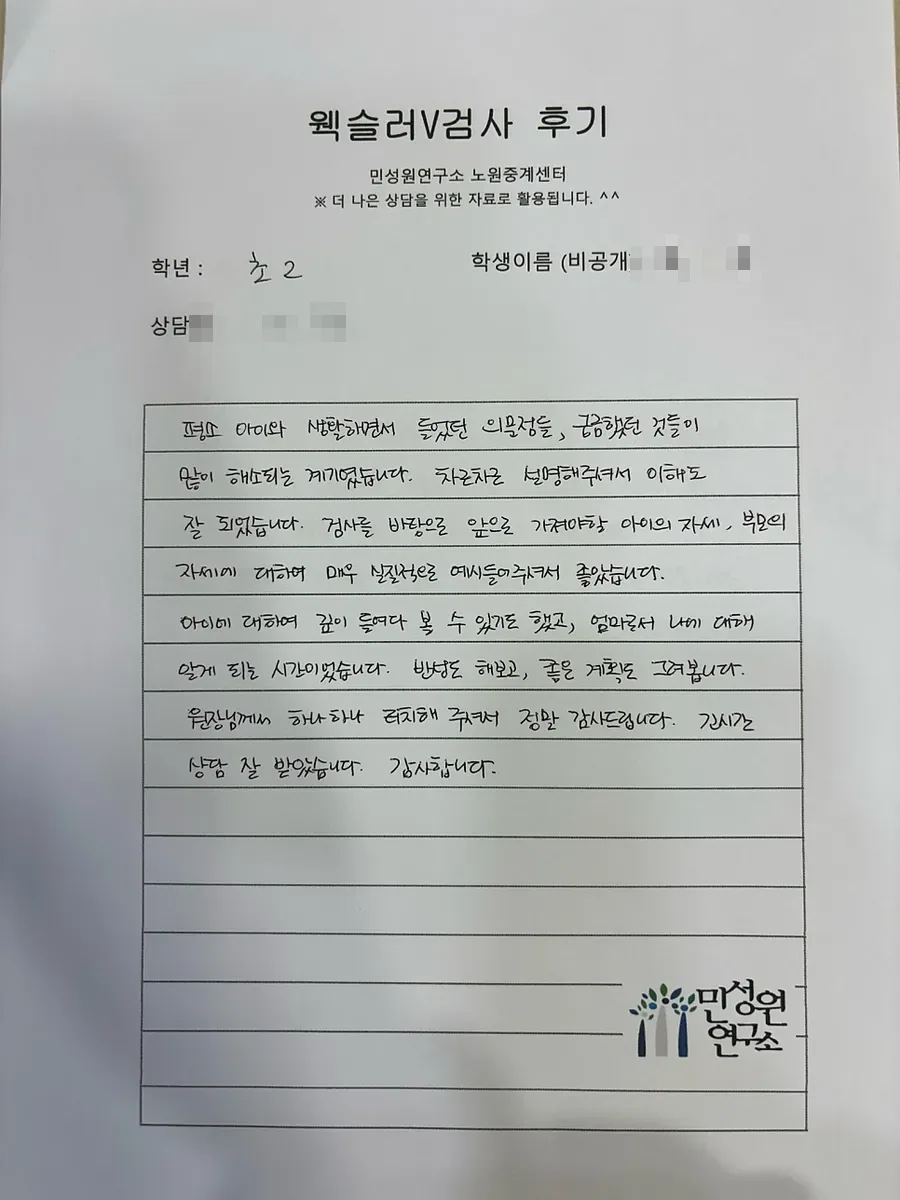 웩슬러V검사 후기
민성원연구소 노원중계센터
※ 더 나은 상담을 위한 자료로 활용됩니다. ^^
학년 : 초2
학생이름 (비공개
상담
평소 아이와 생활하면서 들었던 의문점들, 궁금했던 것들이
많이 해소되는 계기였습니다. 차근차근 설명해주셔서 이해도
잘 되었습니다. 검사를 바탕으로 앞으로 가져야할 아이의 자세, 부모의
자세에 대하여 매우 실질적으로 예시들어주셔서 좋았습니다.
아이에 대하여 깊이 들여다 볼 수 있기도 했고, 엄마로서 나에 대해
알게 되는 시간이었습니다. 반성도 해보고, 좋은 계획도 그려봅니다.
원장님께서 하나하나 터치해 주셔서 정말 감사드립니다. 긴시간
상담 잘 받았습니다. 감사합니다.
민성원
연구소